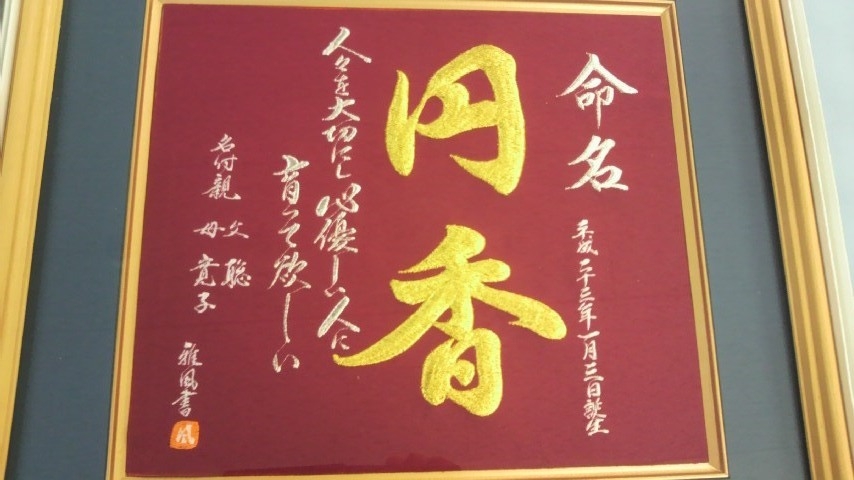 命名
平成二十三年一月三日誕生
円香
人々を大切にし心優しい人に
育って欲しい
名付親 父 聡
母 寛子
雅風書
風